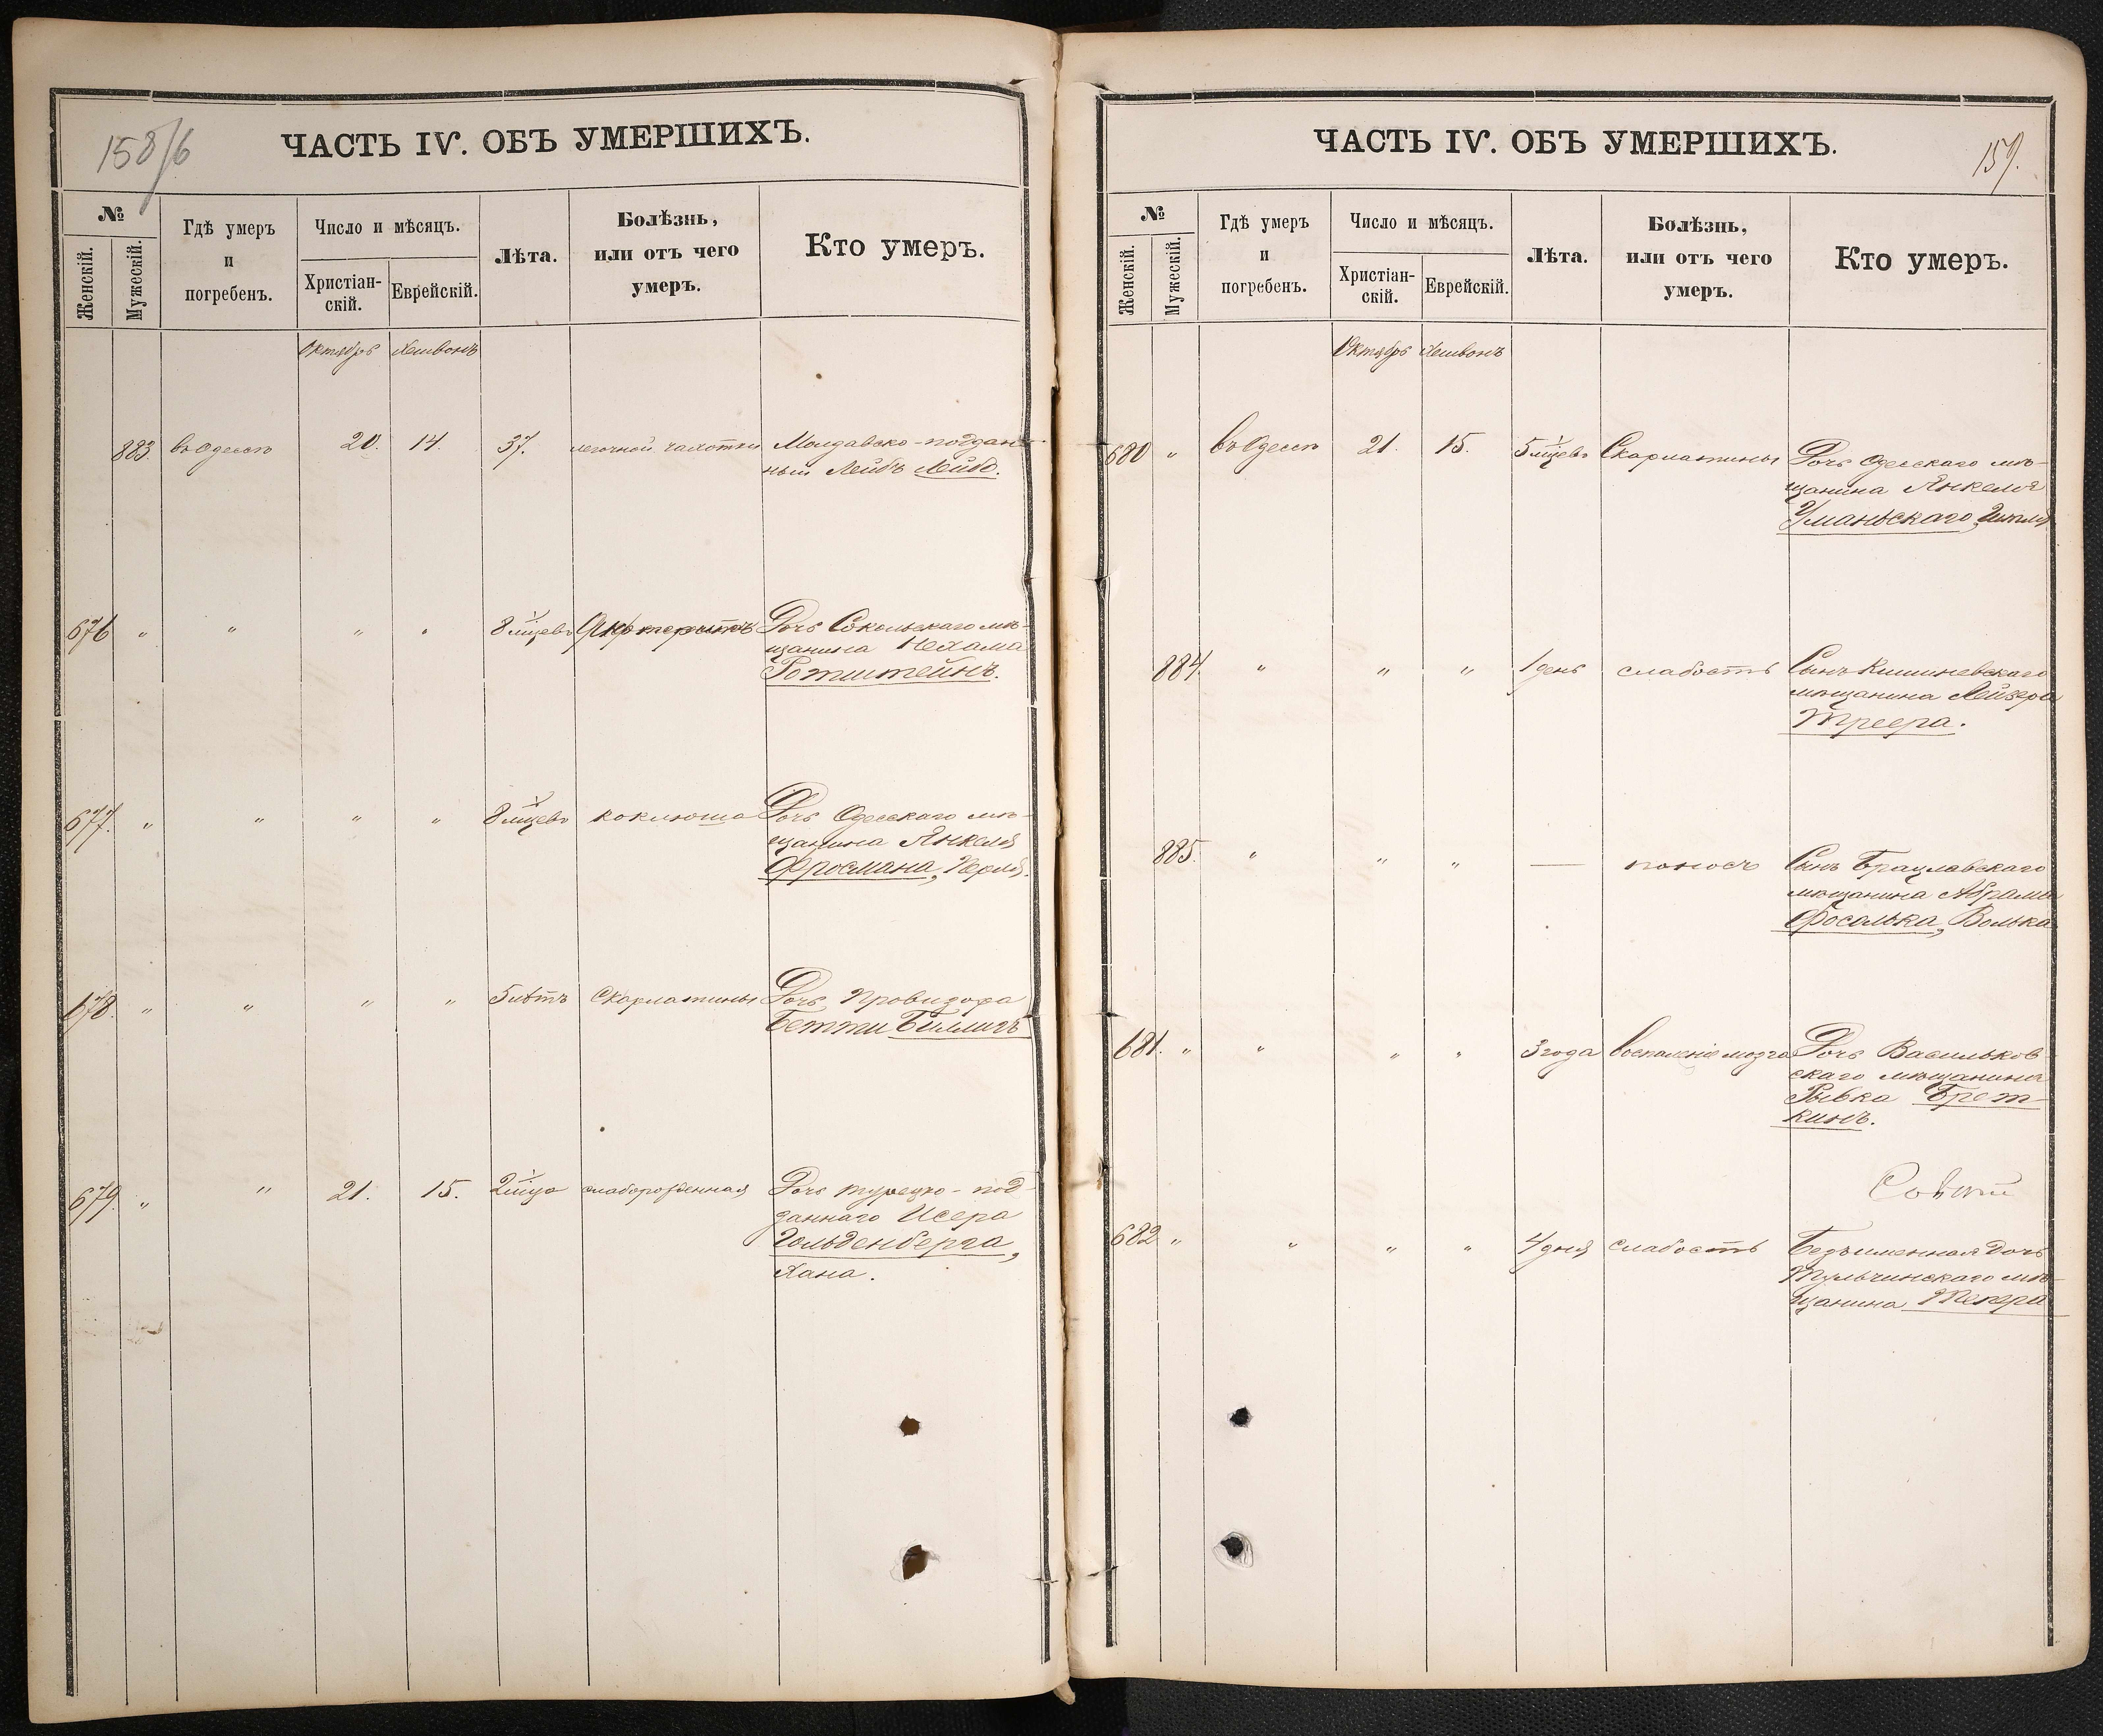 158/6
ЧАСТЬ IV. ОБЪ УМЕРШИХЪ.
№
Женскій.
Мужескій.
Гдѣ умеръ
и
погребенъ.
Число и мѣсяцъ.
Христіан-
скій.
Еврейскій.
Лѣта.
Болѣзнь,
или отъ чего
умеръ.
Кто умеръ.
Октябрь Хешвонъ
883. въ Одессѣ 20. 14. 37. легочной чахотки Молдавско-поддан-
ный Лейбъ Лейб.
676 " " " " 8 мѣцевъ Дочь Сокольскаго мѣ-
щанина Нехама
Ротштейнъ.
677. " " " " 8 мѣцевъ коклюша Дочь Одесскаго мѣ-
щанина Янкеля
Фросмана, Перля.
678. " " " " 5 лѣтъ Скарлатины Дочь Провизора
Бетти Биллигъ
679. " " 21. 15. 2 мѣца слаборожденная Дочь турецко-под-
даннаго Исера
Гольденберга,
Хана.
ЧАСТЬ IV. ОБЪ УМЕРШИХЪ.
159.
№
Женскій.
Мужескій.
Гдѣ умеръ
и
погребенъ.
Число и мѣсяцъ.
Христіан-
скій.
Еврейскій.
Лѣта.
Болѣзнь,
или отъ чего
умеръ.
Кто умеръ.
Октябрь Хешвонъ
680 " въ Одессѣ 21. 15. 5 мѣцевъ Скарлатины Дочь Одесскаго мѣ-
щанина Янкеля
Уманьскаго,
884. " " " 1 день слабость Сынъ Кишиневскаго
мѣщанина Лейзера
Треера.
885. " " " — поносъ Сынъ Брацлавскаго
мѣщанина Абрама
Фосалька, Волька
681. " " " " 3 года воспаленіе мозга Дочь Васильков-
скаго мѣщанина
Рывка Брет-
кинъ.
682 " " " " 4 дня слабость Безъименная дочь
Тульчинскаго мѣ-
щанина Текера